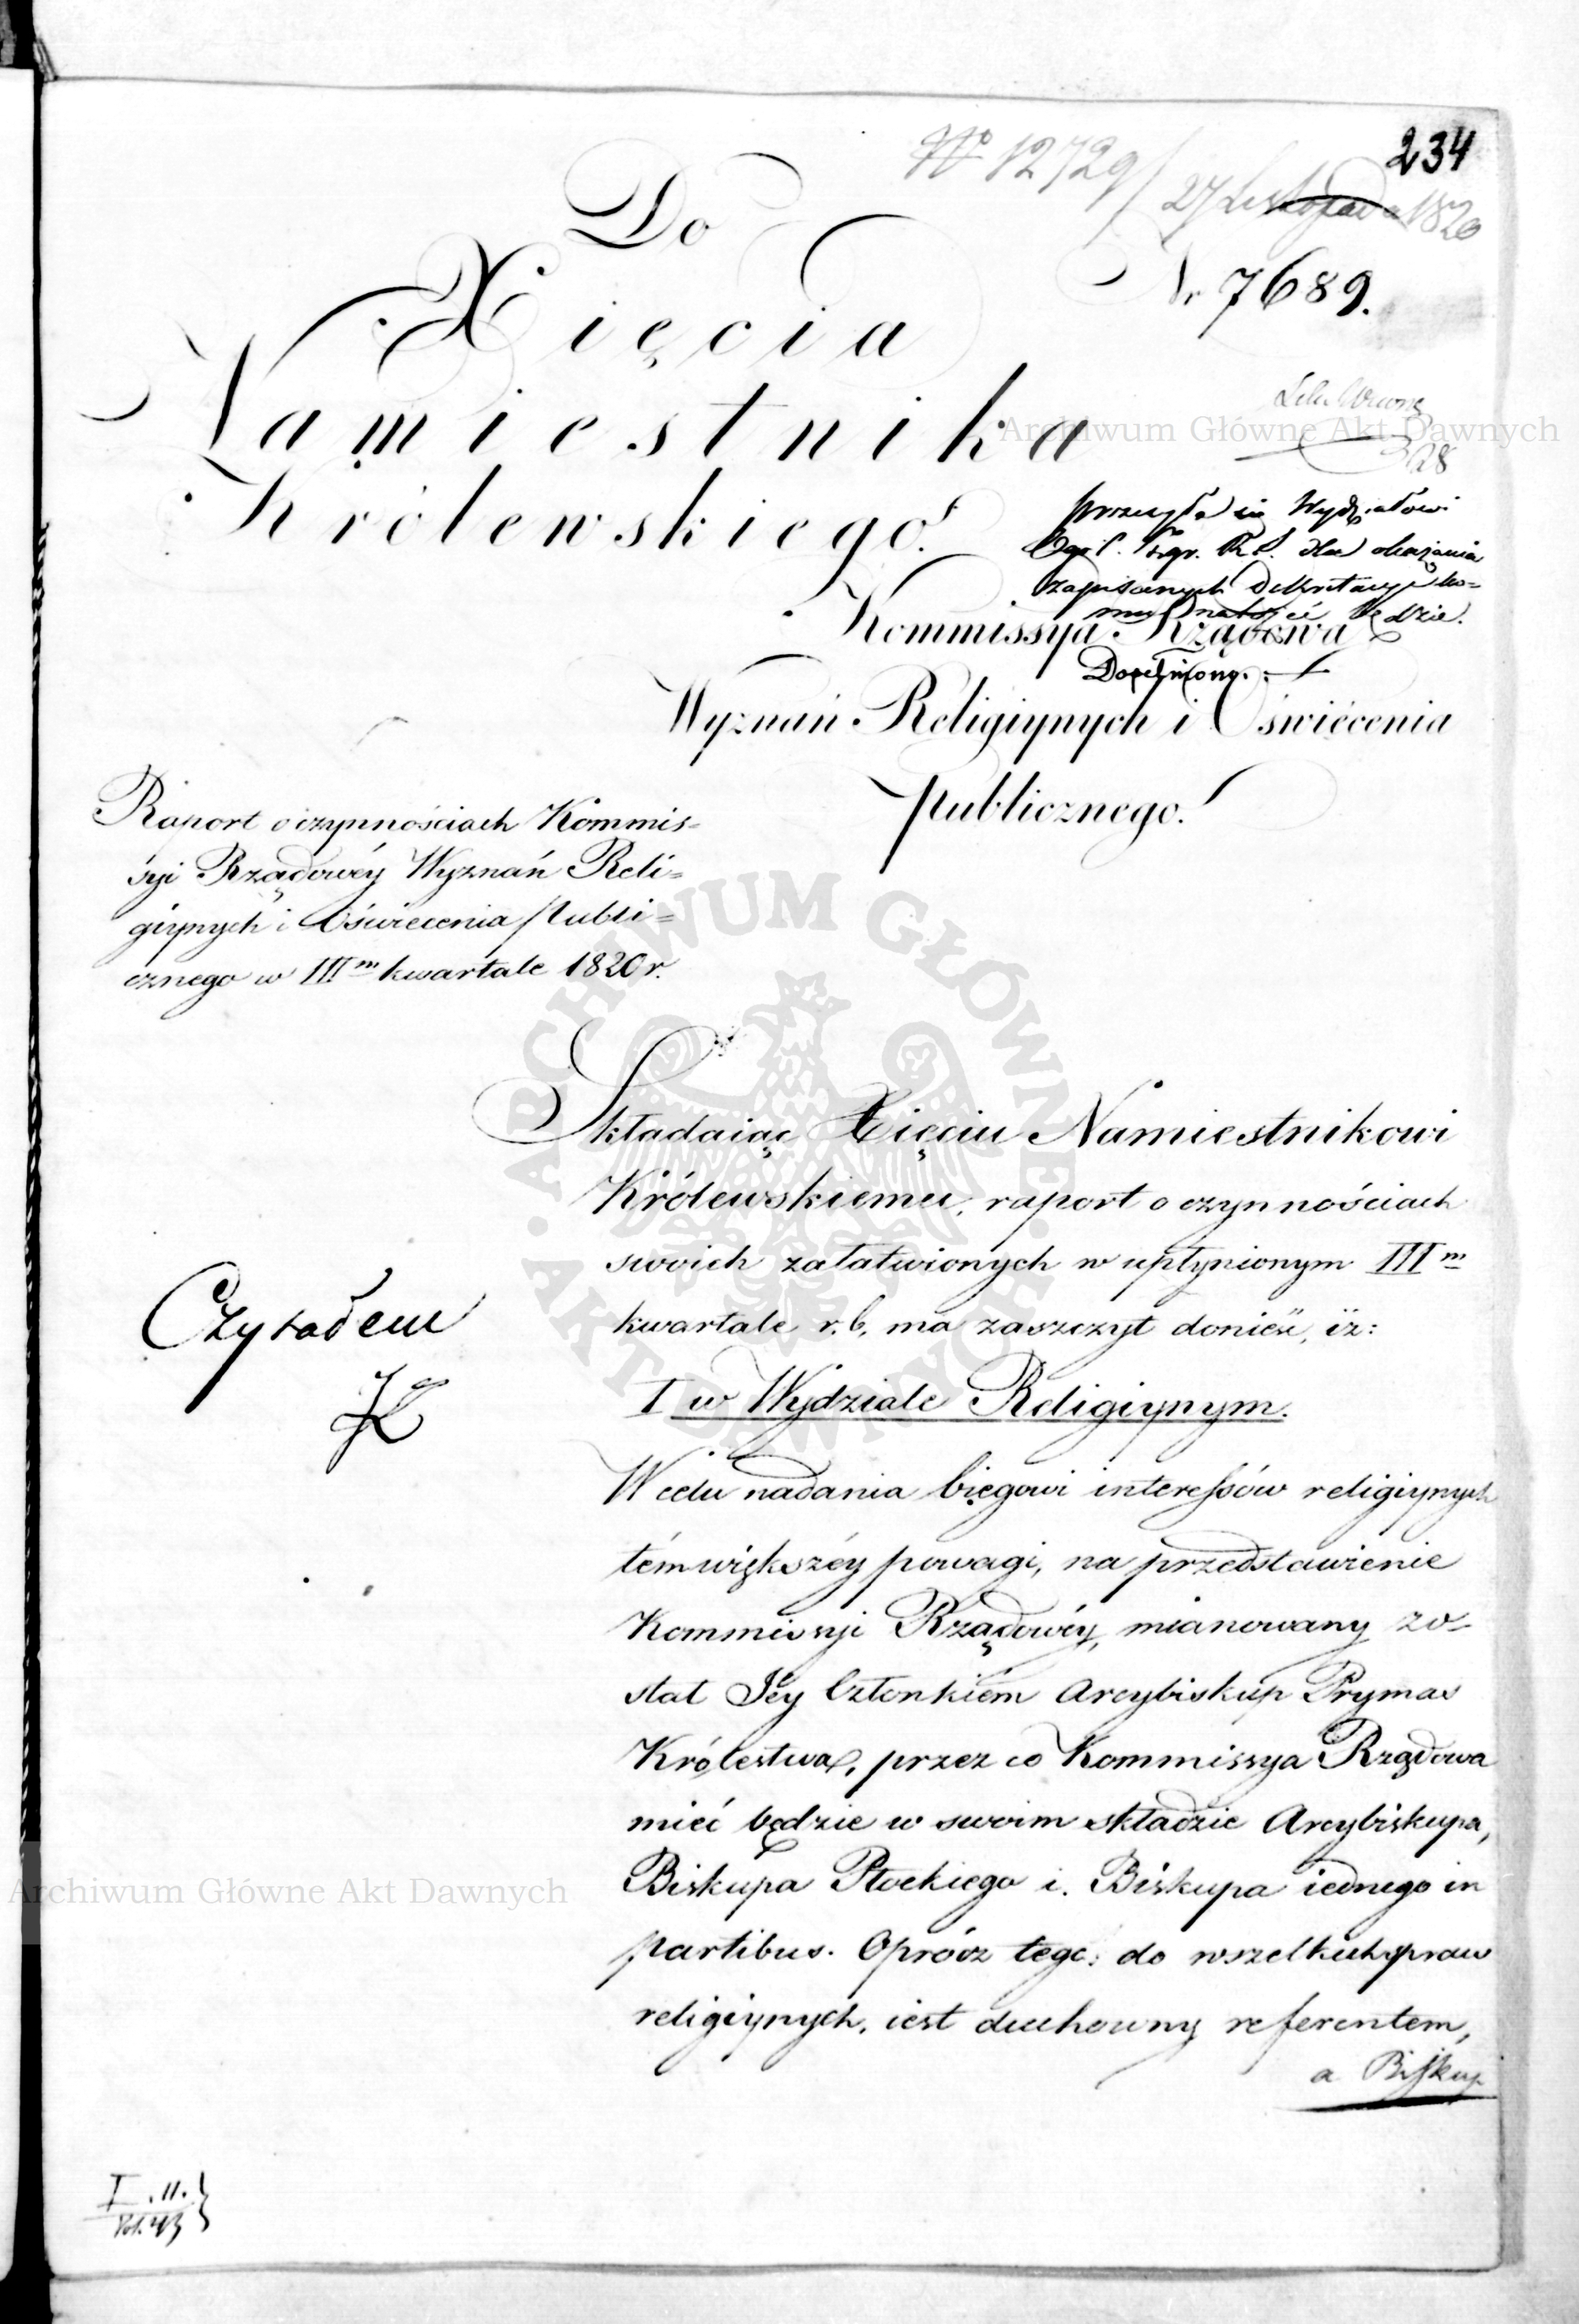 234
No 12729/ 27 Listopada 1820
Do
Xięcia
Nr 7689.
Namiestnika
Królewskiego.
28
przesyła się Wydziałowi
dla okazania
zapisanych
będzie.
Kommissya Rządowa
Dopełniono.
Wyznań Religiynych i Oświécenia
Publicznego.
Raport o czynnościach Kommis=
syi Rządowéy Wyznań Reli=
giynych i Oświecenia Publi=
cznego w IIIm kwartale 1820 r.
Składaiąc Xięciu Namiestnikowi
Królewskiemu, raport o czynnościach
swoich załatwionych w upłynionym IIIm
kwartale r. b. ma zaszczyt donieść, iż:
Czytałem
I w Wydziale Religiynym.
W celu nadania biegowi interessów religiynych
tém większéy powagi, na przedstawienie
Kommissyi Rządowéy, mianowany zo-
stał Jéy Członkiém Arcybiskup Prymas
Królestwa, przez co Kommissya Rządowa
mieć będzie w swoim składzie Arcybiskupa,
Biskupa Płockiego i Biskupa iednego in
partibus. Oprócz tego: do wszelkich spraw
religiynych, iest duchowny referentem,
a Biskup
I . II.
Vol. 43
Archiwum Główne Akt Dawnych
ARCHIWUM GŁÓWNE AKT DAWNYCH
Archiwum Główne Akt Dawnych